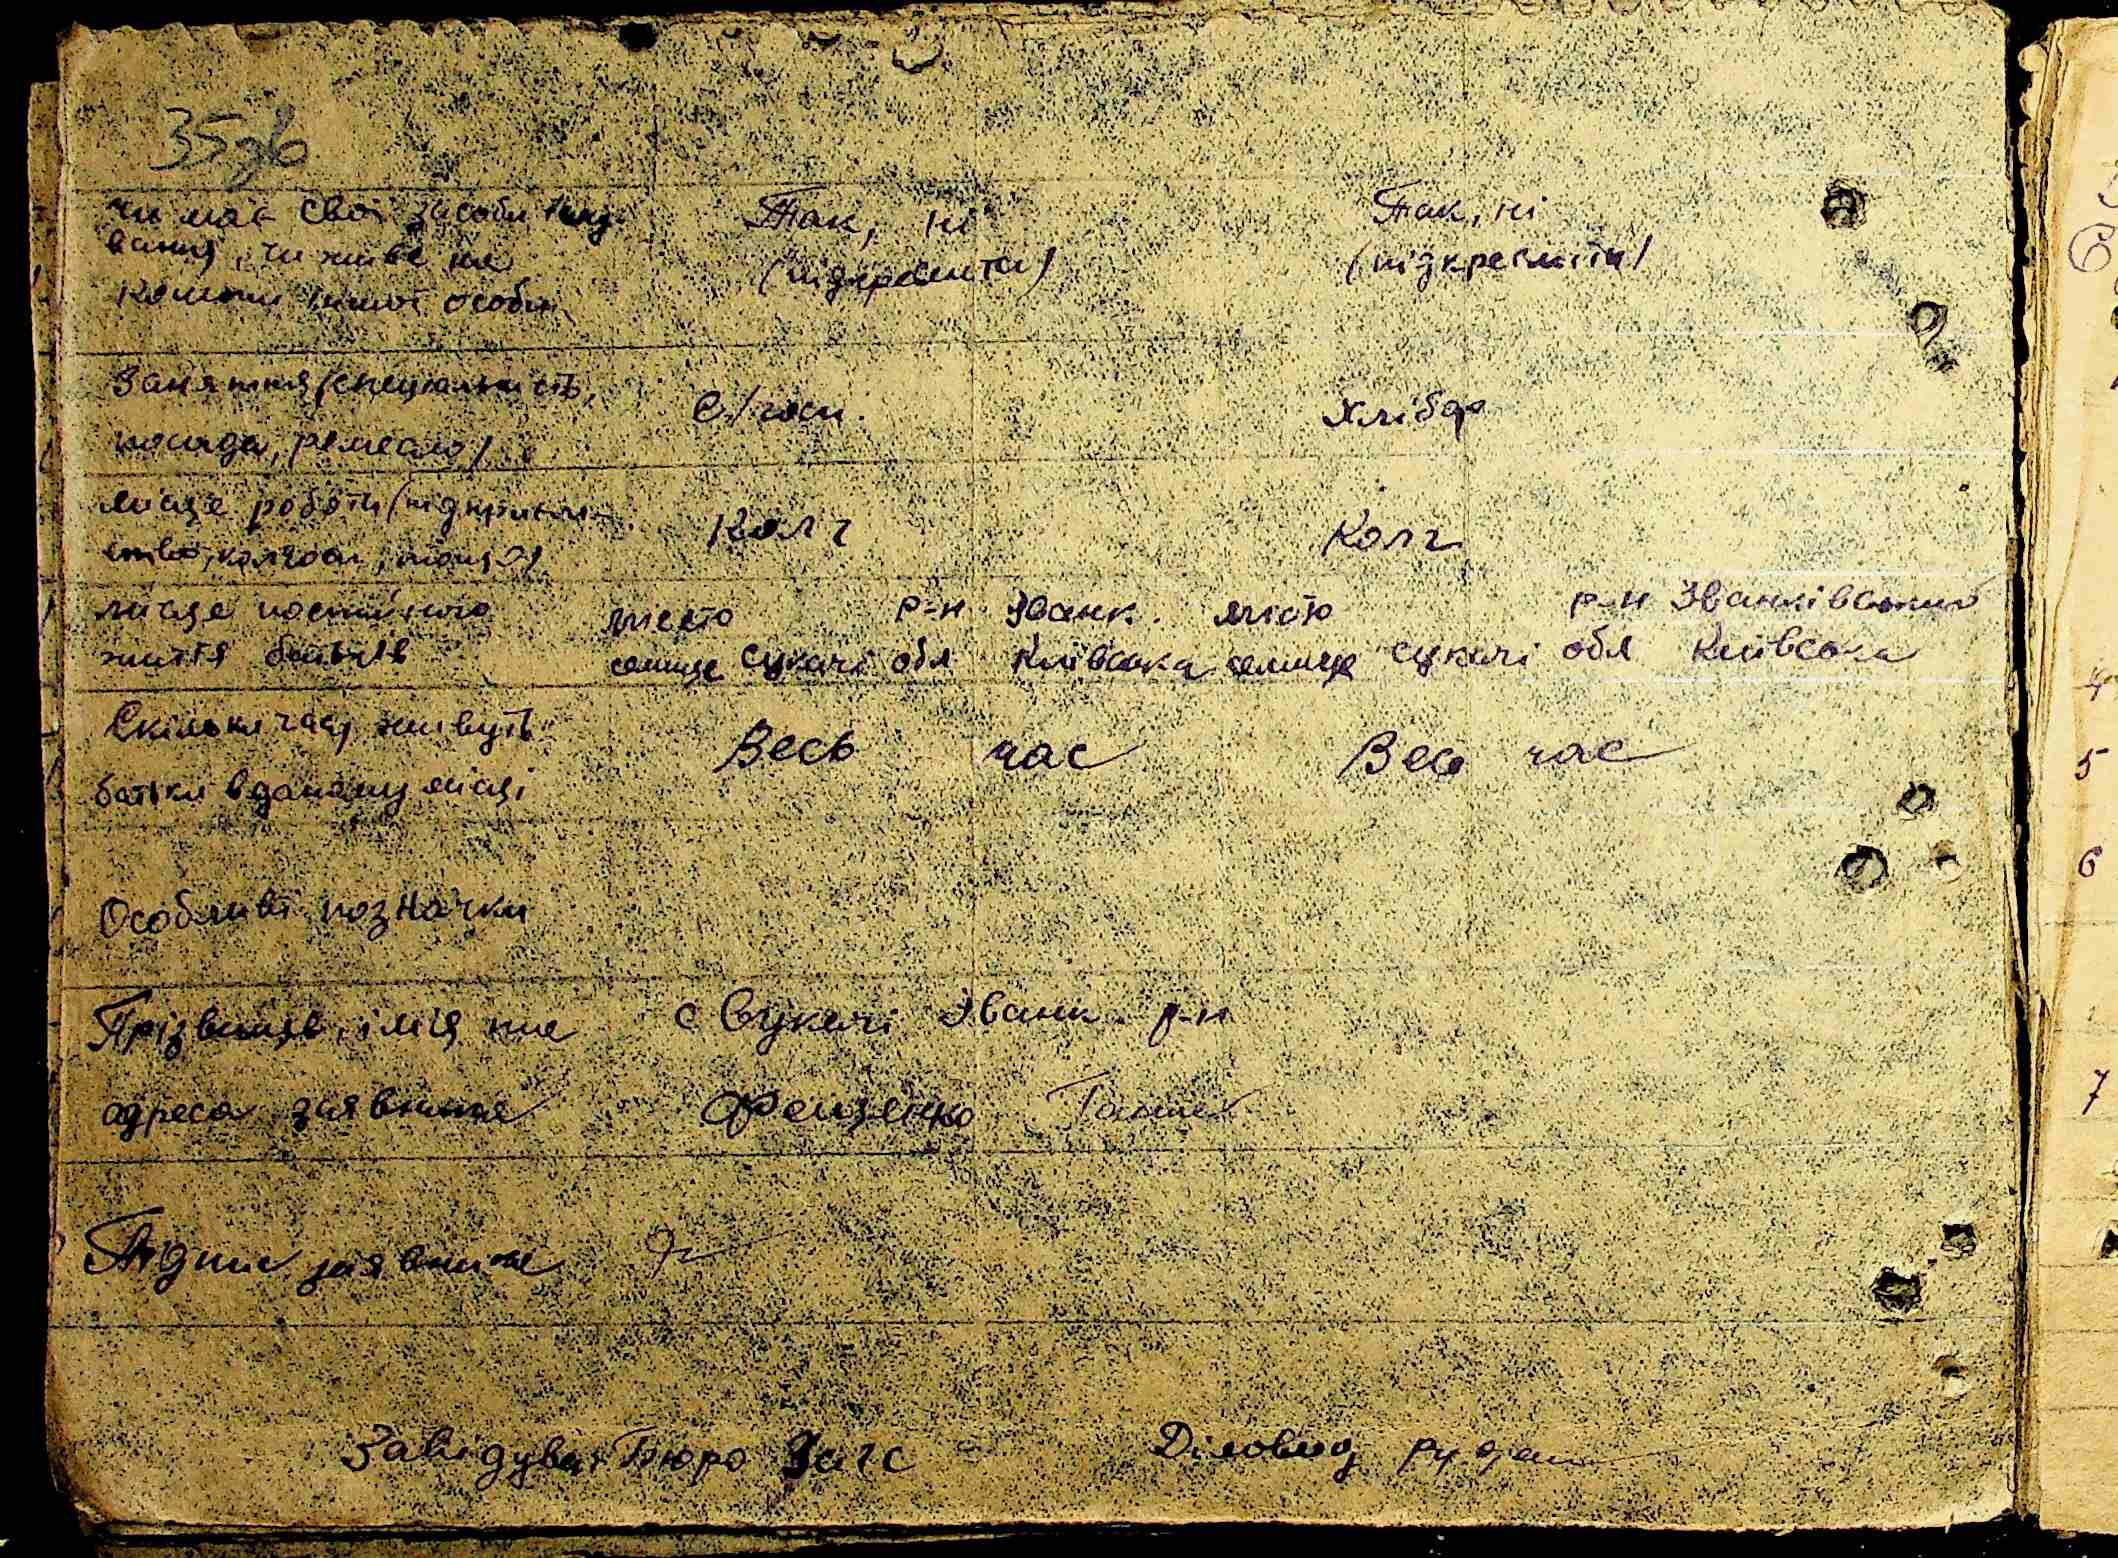 35зв
чи має свої засоби існу-
вання, чи живе на
кошти іншої особи
Так, ні
(підкреслити)
Так, ні
(підкреслити)
Заняття (спеціальність,
посада, ремесло)
С/госп.
Хлібор
місце роботи (підприєм-
ство, колгосп, тощо)
Колг
Колг
місце постійного
життя батьків
місто р-н Іванк.
селище Сукачі обл Київська
місто р-н Іванківський
селище Сукачі обл Київська
Скільки часу живуть
батьки в даному місці
Весь час
Весь час
Особливі позначки
Прізвище, ім'я та
адреса заявника
с Сукачі Іванк. р-н
Фещенко
Підпис заявника
Завідувач Бюро Загс
Діловод
4
5
6
7